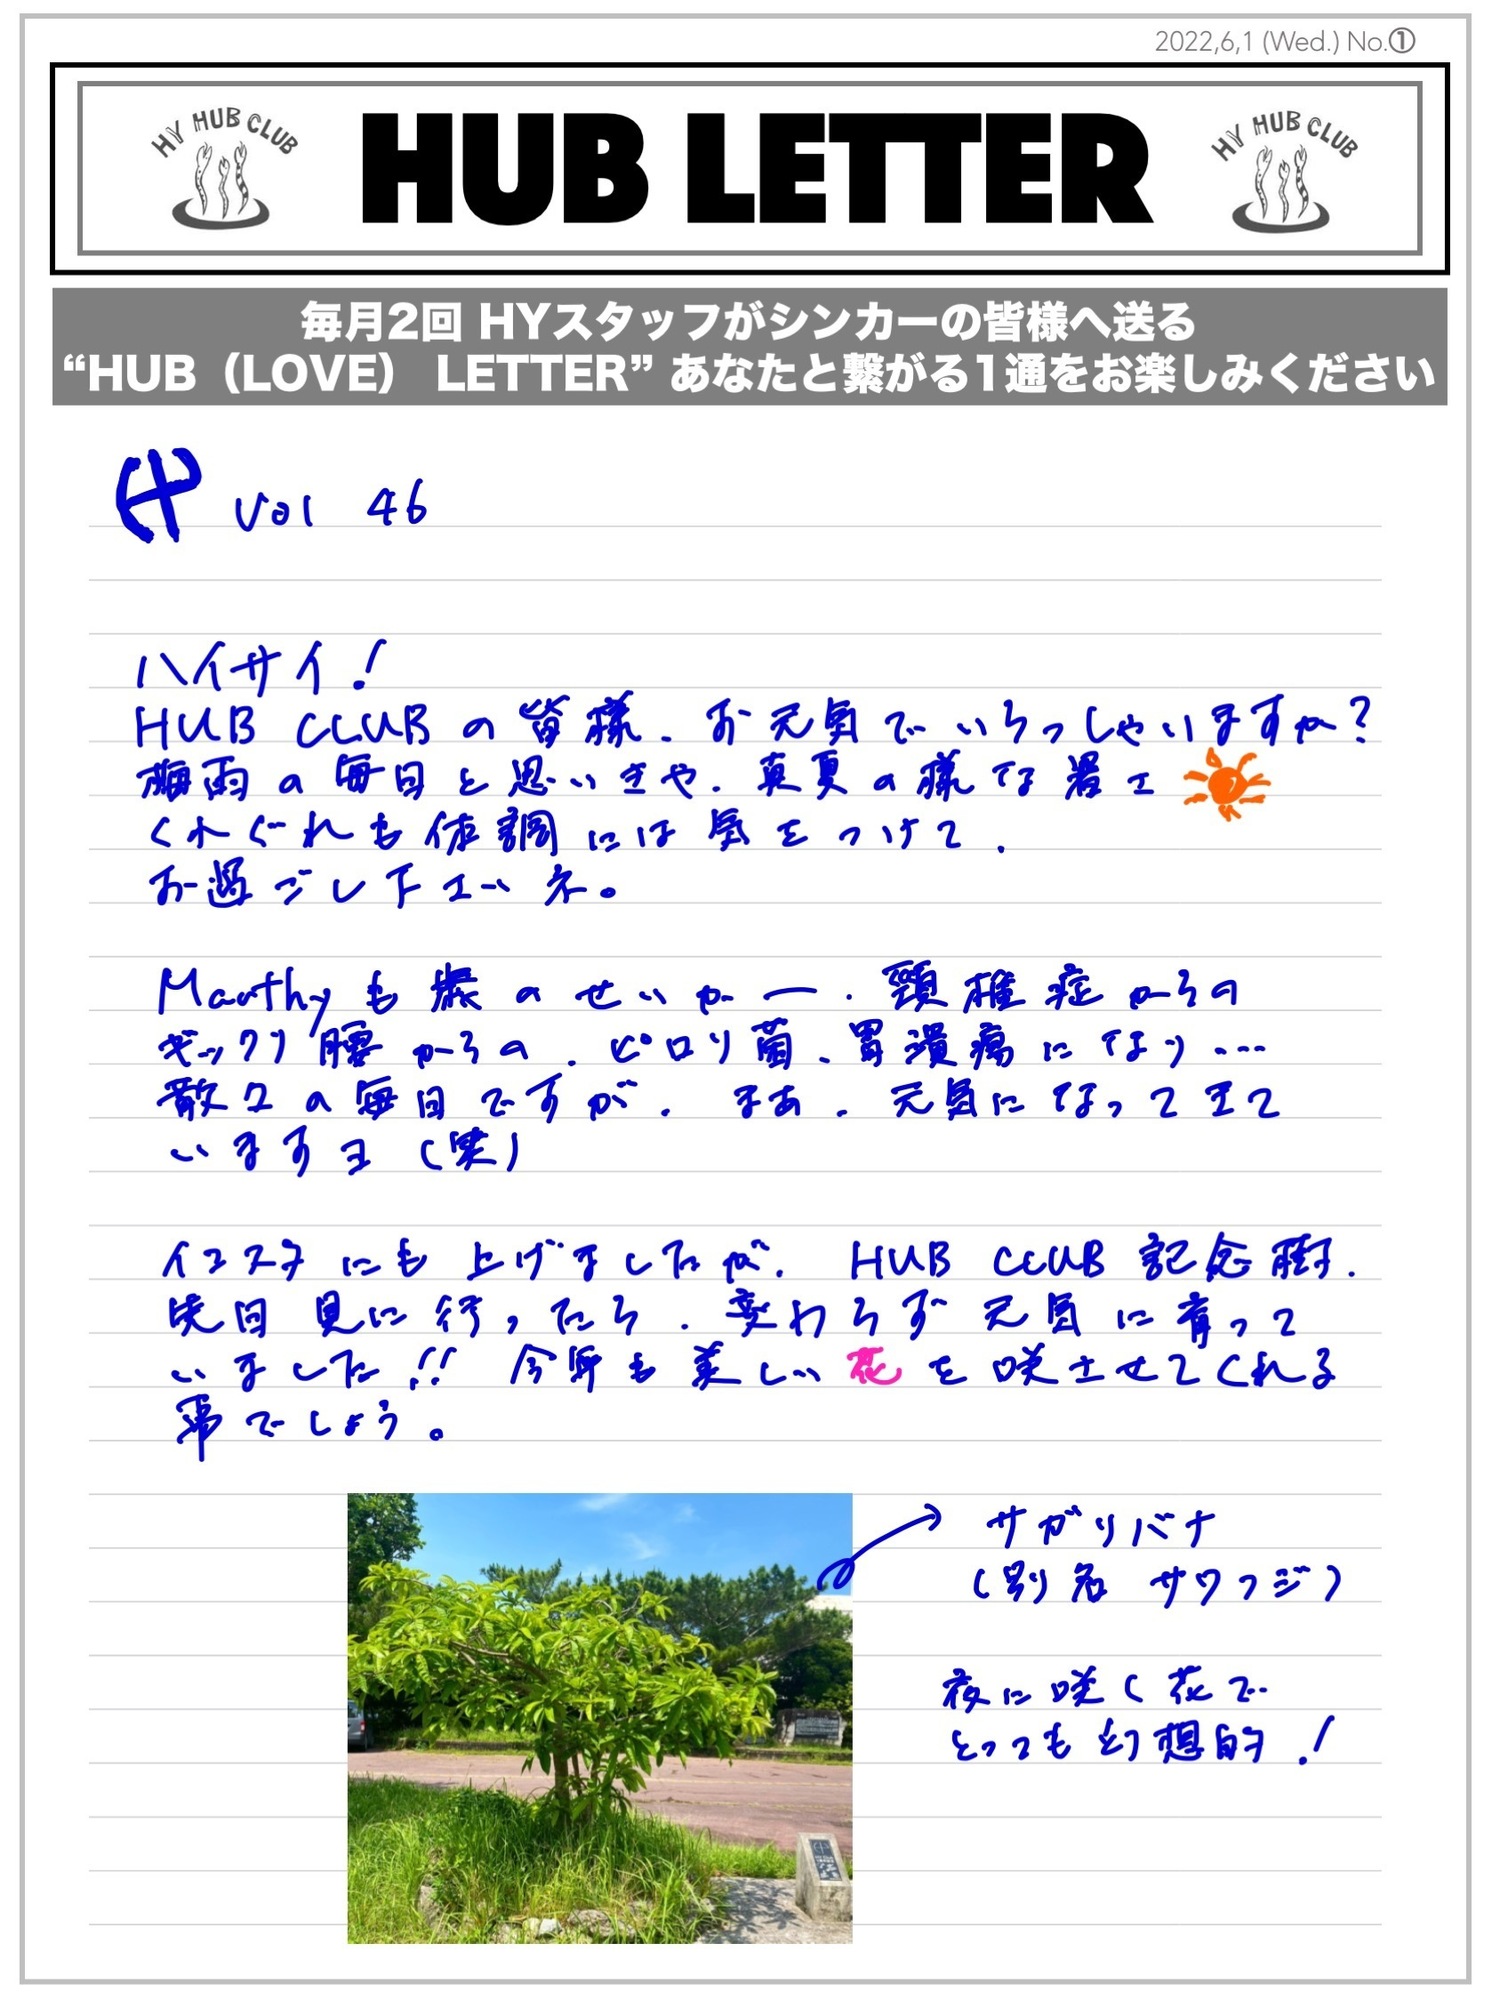 2022,6,1 (Wed.) No.①
HY HUB CLUB
HUB LETTER
HY HUB CLUB
毎月2回 HYスタッフがシンカーの皆様へ送る
“HUB（LOVE） LETTER” あなたと繋がる1通をお楽しみください
Vol 46
ハイサイ!
HUB CLUBの皆様、お元気でいらっしゃいますか?
梅雨の毎日と思いきや、真夏の様な暑さ
くれぐれも体調には気をつけて、
お過ごし下さいネ。
Maathyも歳のせいかー、頸椎症からの
ギックリ腰からの、ピロリ菌、胃潰瘍になり…
散々の毎日ですが、まあ、元気になってきて
いますヨ(笑)
インスタにも上げましたが、HUB CLUB記念樹、
先日見に行ったら、変わらず元気に育って
いました!! 今年も美しい花を咲させてくれる
事でしょう。
サガリバナ
(別名 サワフジ)
夜に咲く花で
とっても幻想的!